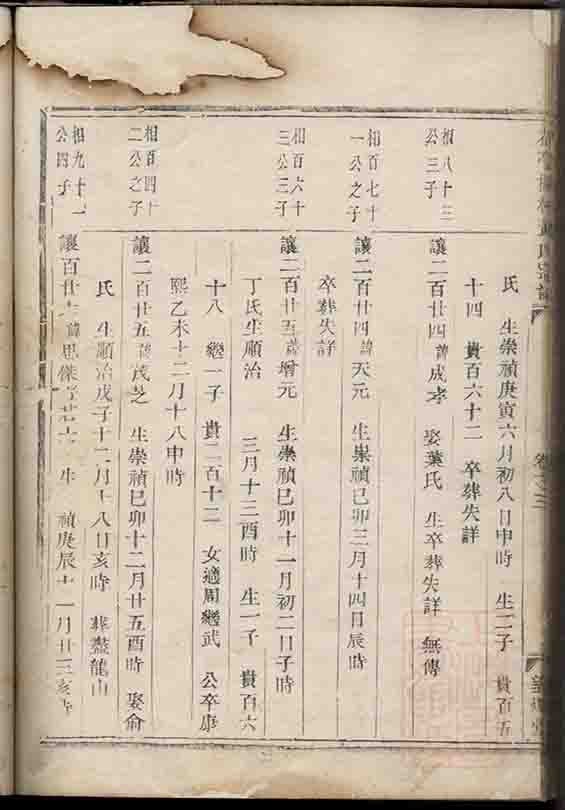 氏　生崇禎庚寅六月初八日申時　生二子　貴百五
十四　貴百六十二　卒葬失詳
相八十三
公三子
讓二百廿四諱成孝　娶葉氏　生卒葬失詳　無傳
相百七十
一公之子
讓二百廿四諱天元　生崇禎巳卯三月十四日辰時
卒葬失詳
相百六十
三公三子
讓二百廿五諱增元　生崇禎巳卯十一月初二日子時
丁氏生順治　三月十三酉時　生一子　貴百六
十八　繼一子　貴二百十二　女適周繼武　公卒康
熙乙未十二月十八申時
相百四十
二公之子
讓二百廿五諱茂芝　生崇禎巳卯十二月廿五酉時　娶俞
氏　生順治戊子十二月十八日亥時　葬盤龍山
相九十一
公四子
讓百廿六諱思傑　生　禎庚辰十一月廿三亥時
卷之三